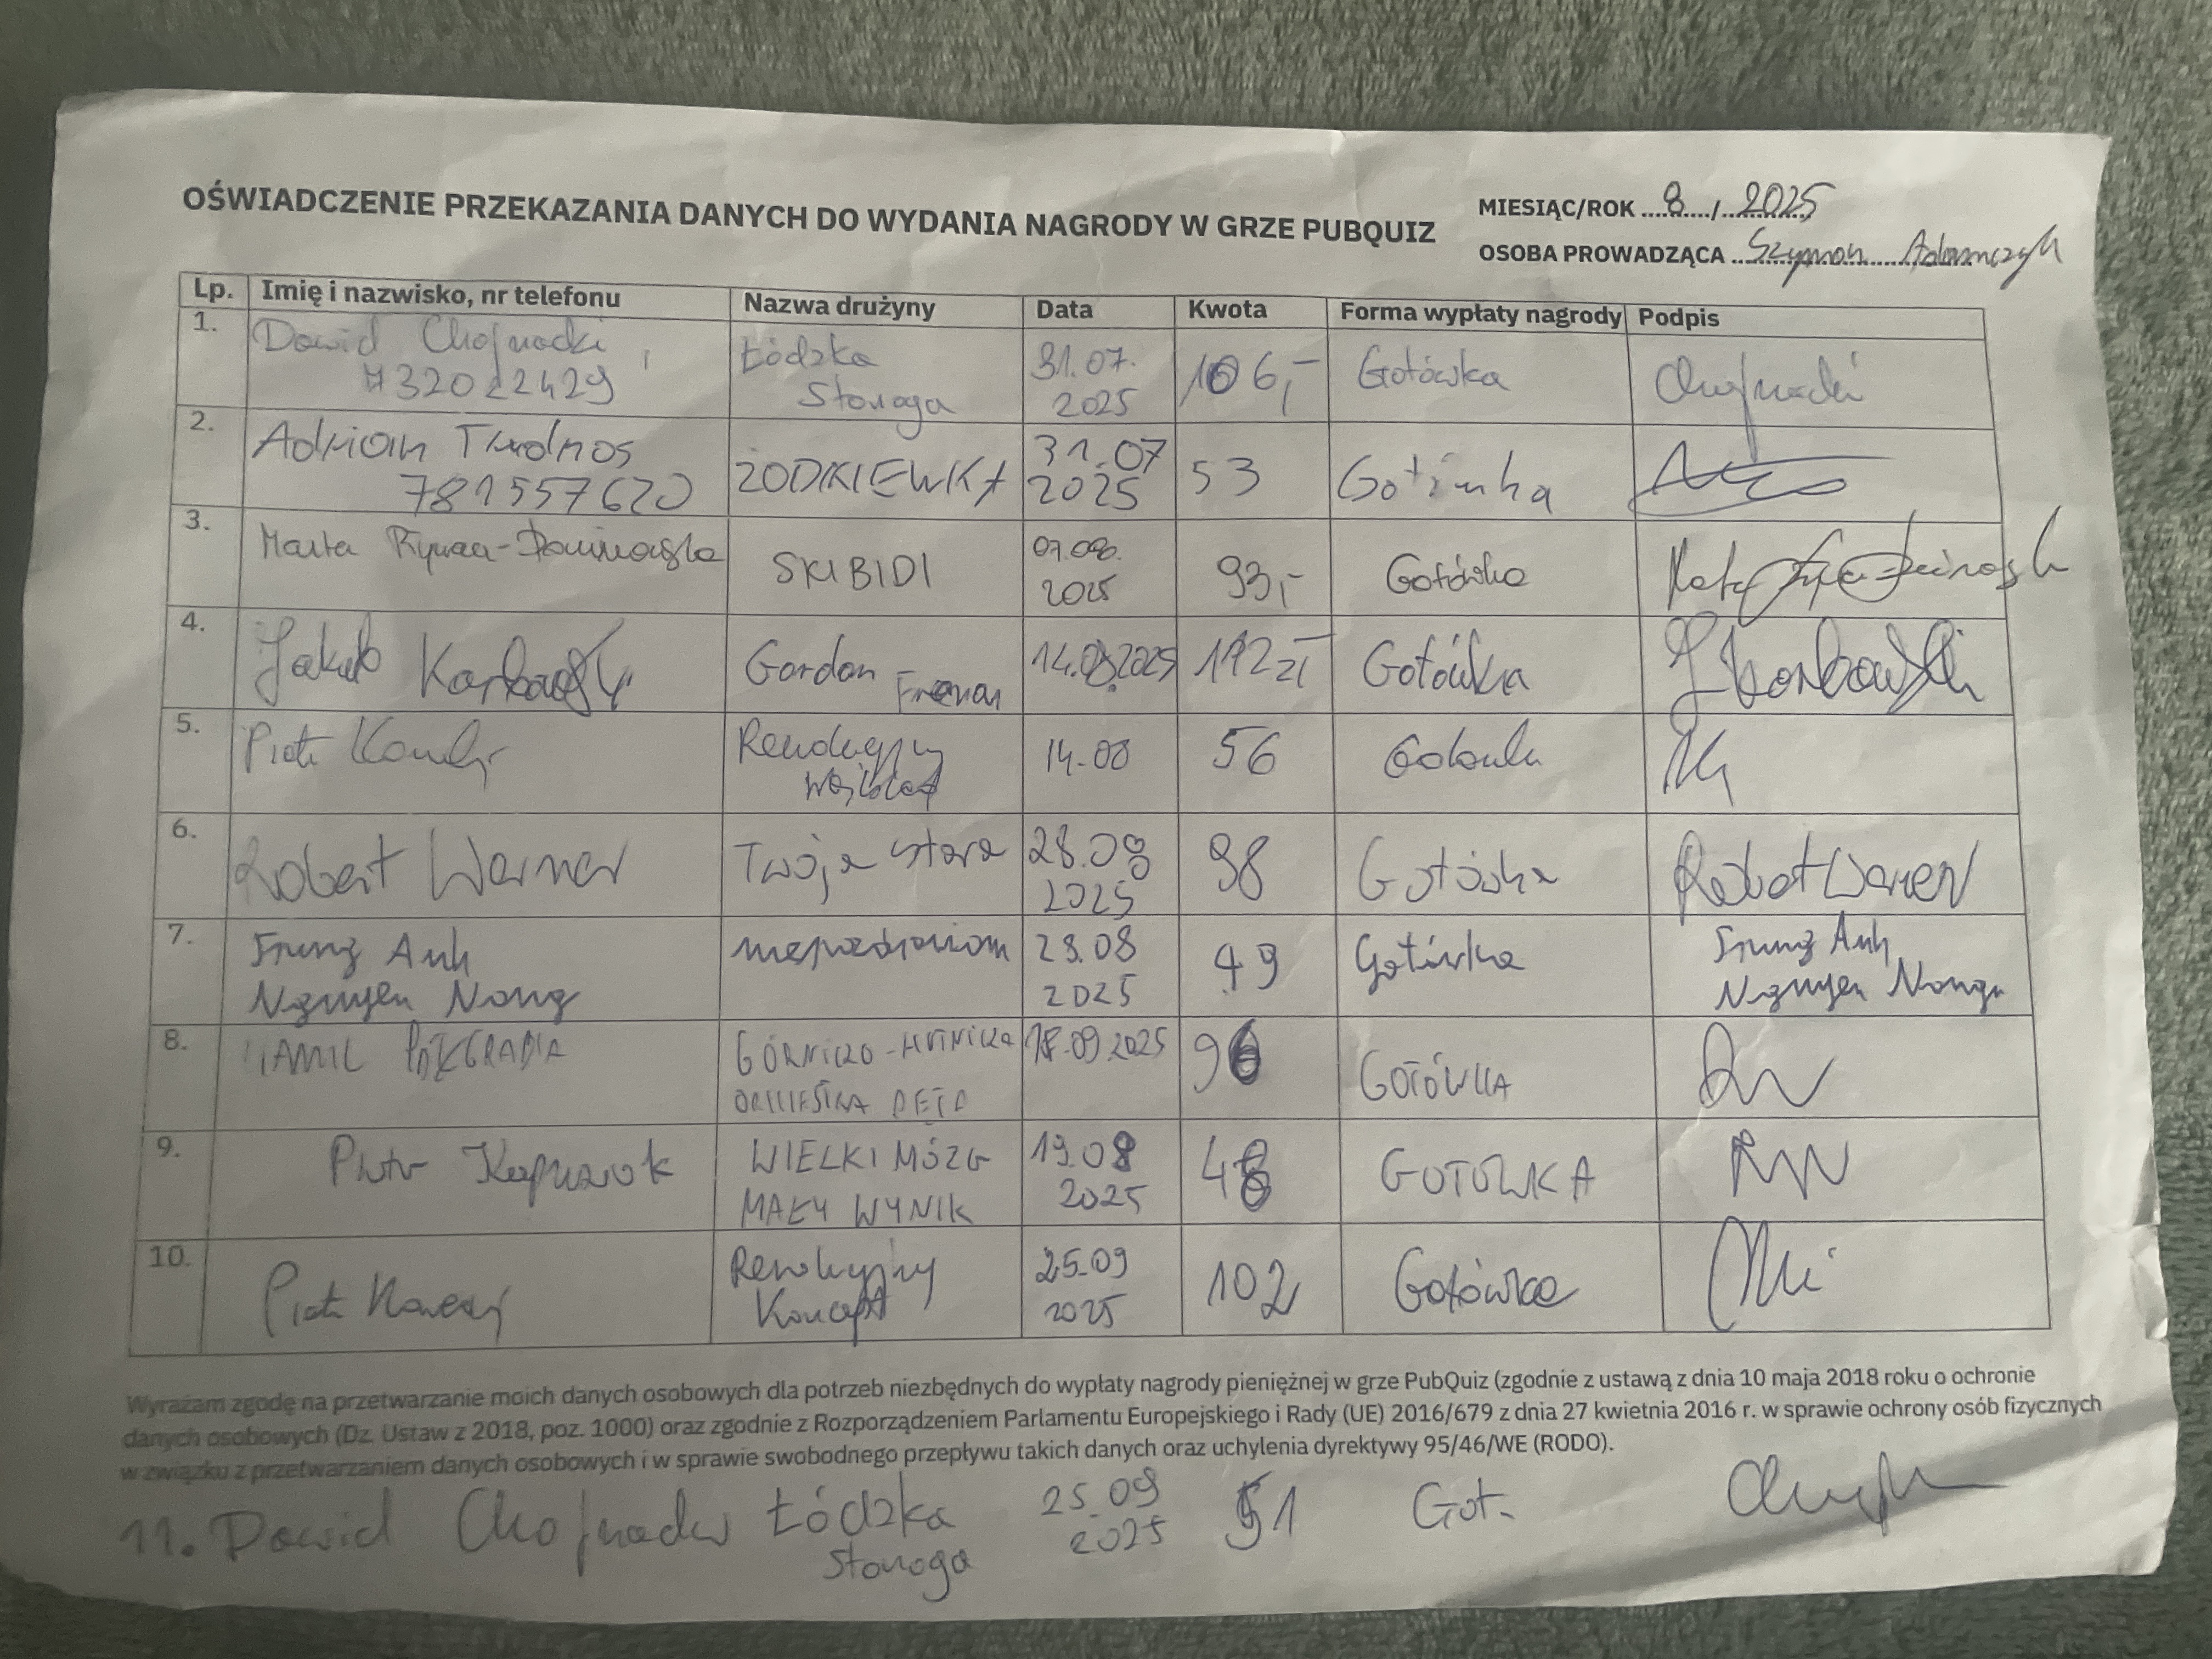 OŚWIADCZENIE PRZEKAZANIA DANYCH DO WYDANIA NAGRODY W GRZE PUBQUIZ
MIESIĄC/ROK 8 / 2025
OSOBA PROWADZĄCA Szymon Adamczyk
Lp. Imię i nazwisko, nr telefonu Nazwa drużyny Data Kwota Forma wypłaty nagrody Podpis
1. Dawid Chojnacki, 732022429 Łódzka Stonoga 31.07. 2025 106,- Gotówka Chojnacki
2. Adrian 781557620 31.07 2025 53 Gotówka
3. Marta SKIBIDI 07.08. 2025 93,- Gotówka
4. Jakub Karbowski Gordon Freman 14.08.2025 112 zł Gotówka J Karbowski
5. Piotr 14.08 56 Gotówka
6. Robert Werner Twoja stara 28.08 2025 98 Gotówka Robert Werner
7. Trung Anh Nguyen Nong 28.08 2025 49 Gotówka Trung Anh Nguyen Nong
8. KAMIL GÓRNICZO-HUTNICZA ORKIESTRA DĘTA 18.09.2025 96 GOTÓWKA
9. Piotr WIELKI MÓZG MAŁY WYNIK 2025 48 GOTÓWKA
10. Piotr Rewolucyjny Koncept 25.09 2025 102 Gotówka
Wyrażam zgodę na przetwarzanie moich danych osobowych dla potrzeb niezbędnych do wypłaty nagrody pieniężnej w grze PubQuiz (zgodnie z ustawą z dnia 10 maja 2018 roku o ochronie
danych osobowych (Dz. Ustaw z 2018, poz. 1000) oraz zgodnie z Rozporządzeniem Parlamentu Europejskiego i Rady (UE) 2016/679 z dnia 27 kwietnia 2016 r. w sprawie ochrony osób fizycznych
w związku z przetwarzaniem danych osobowych i w sprawie swobodnego przepływu takich danych oraz uchylenia dyrektywy 95/46/WE (RODO).
11. Dawid Chojnacki Łódzka Stonoga 25.09 2025 51 Got.